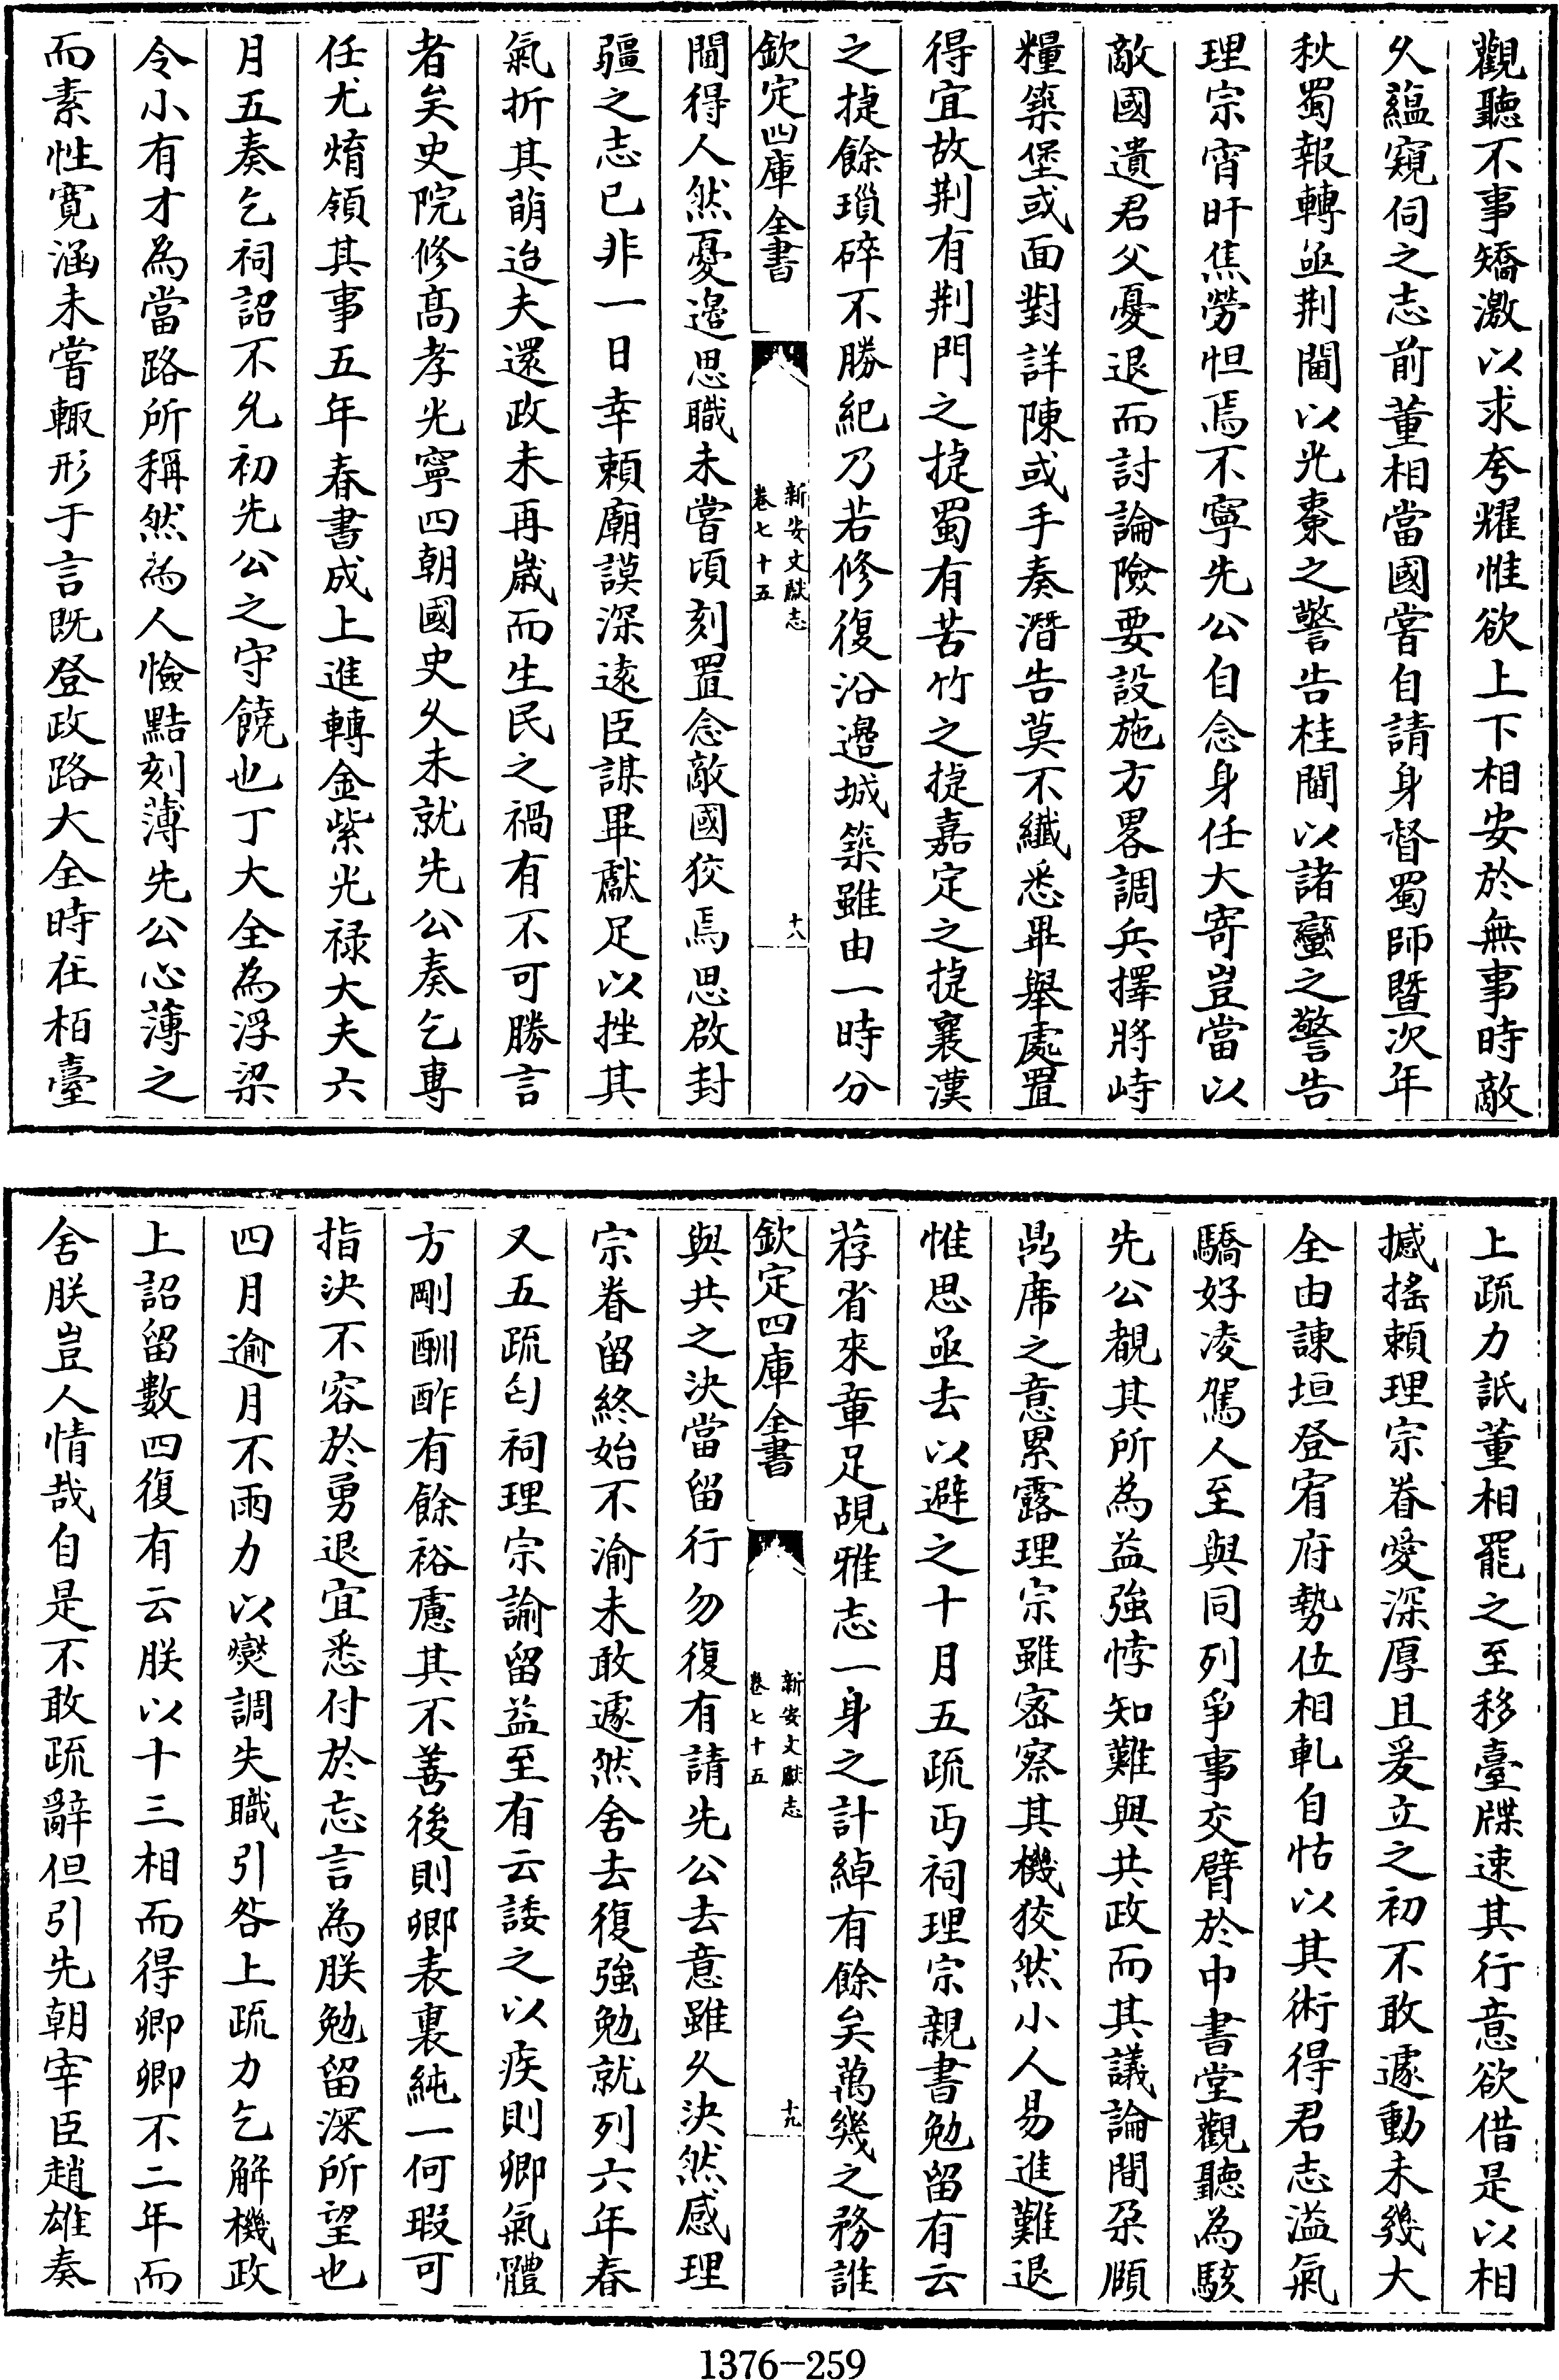 觀聽不事矯激以求夸耀惟欲上下相安於無事時敵
久藴窺伺之志前董相當國嘗自請身督蜀師暨次年
秋蜀報轉亟荆閫以光棗之警告桂閫以諸蠻之警告
理宗宵旰焦勞怛焉不寧先公自念身任大寄豈當以
敵國遺君父憂退而討論險要設施方畧調兵擇將峙
糧築堡或面對詳陳或手奏潛告莫不纖悉畢舉處置
得宜故荆有荆門之捷蜀有苦竹之捷嘉定之捷襄漢
之捷餘瑣碎不勝紀乃若修復沿邊城築雖由一時分
欽定四庫全書
新安文獻志
卷七十五
十八
閫得人然憂邊思職未嘗頃刻置念敵國狡焉思啟封
疆之志已非一日幸賴廟謨深遠臣謀畢獻足以挫其
氣折其萌迨夫還政未再歲而生民之禍有不可勝言
者矣史院修髙孝光寧四朝國史久未就先公奏乞専
任尤焴領其事五年春書成上進轉金紫光禄大夫六
月五奏乞祠詔不允初先公之守饒也丁大全為浮梁
令小有才為當路所稱然為人憸黠刻薄先公心薄之
而素性寛涵未嘗輙形于言既登政路大全時在栢臺
上疏力詆董相罷之至移臺牒速其行意欲借是以相
撼搖賴理宗眷愛深厚且爰立之初不敢遽動未幾大
全由諫垣登宥府勢位相軋自怙以其術得君志溢氣
驕好凌駕人至與同列爭事交臂於中書堂觀聽為駭
先公覩其所為益強悖知難與共政而其議論間朶頤
鼎席之意累露理宗雖宻察其機狡然小人易進難退
惟思亟去以避之十月五疏丐祠理宗親書勉留有云
荐省來章足覘雅志一身之計綽有餘矣萬幾之務誰
欽定四庫全書
新安文獻志
卷七十五
十九
與共之決當留行勿復有請先公去意雖久決然感理
宗眷留終始不渝未敢遽然舍去復強勉就列六年春
又五疏匄祠理宗諭留益至有云諉之以疾則卿氣體
方剛酬酢有餘裕慮其不善後則卿表裏純一何瑕可
指決不容於勇退宜悉付於忘言為朕勉留深所望也
四月逾月不雨力以爕調失職引咎上疏力乞解機政
上詔留數四復有云朕以十三相而得卿卿不二年而
舍朕豈人情哉自是不敢疏辭但引先朝宰臣趙雄奏
1376-259